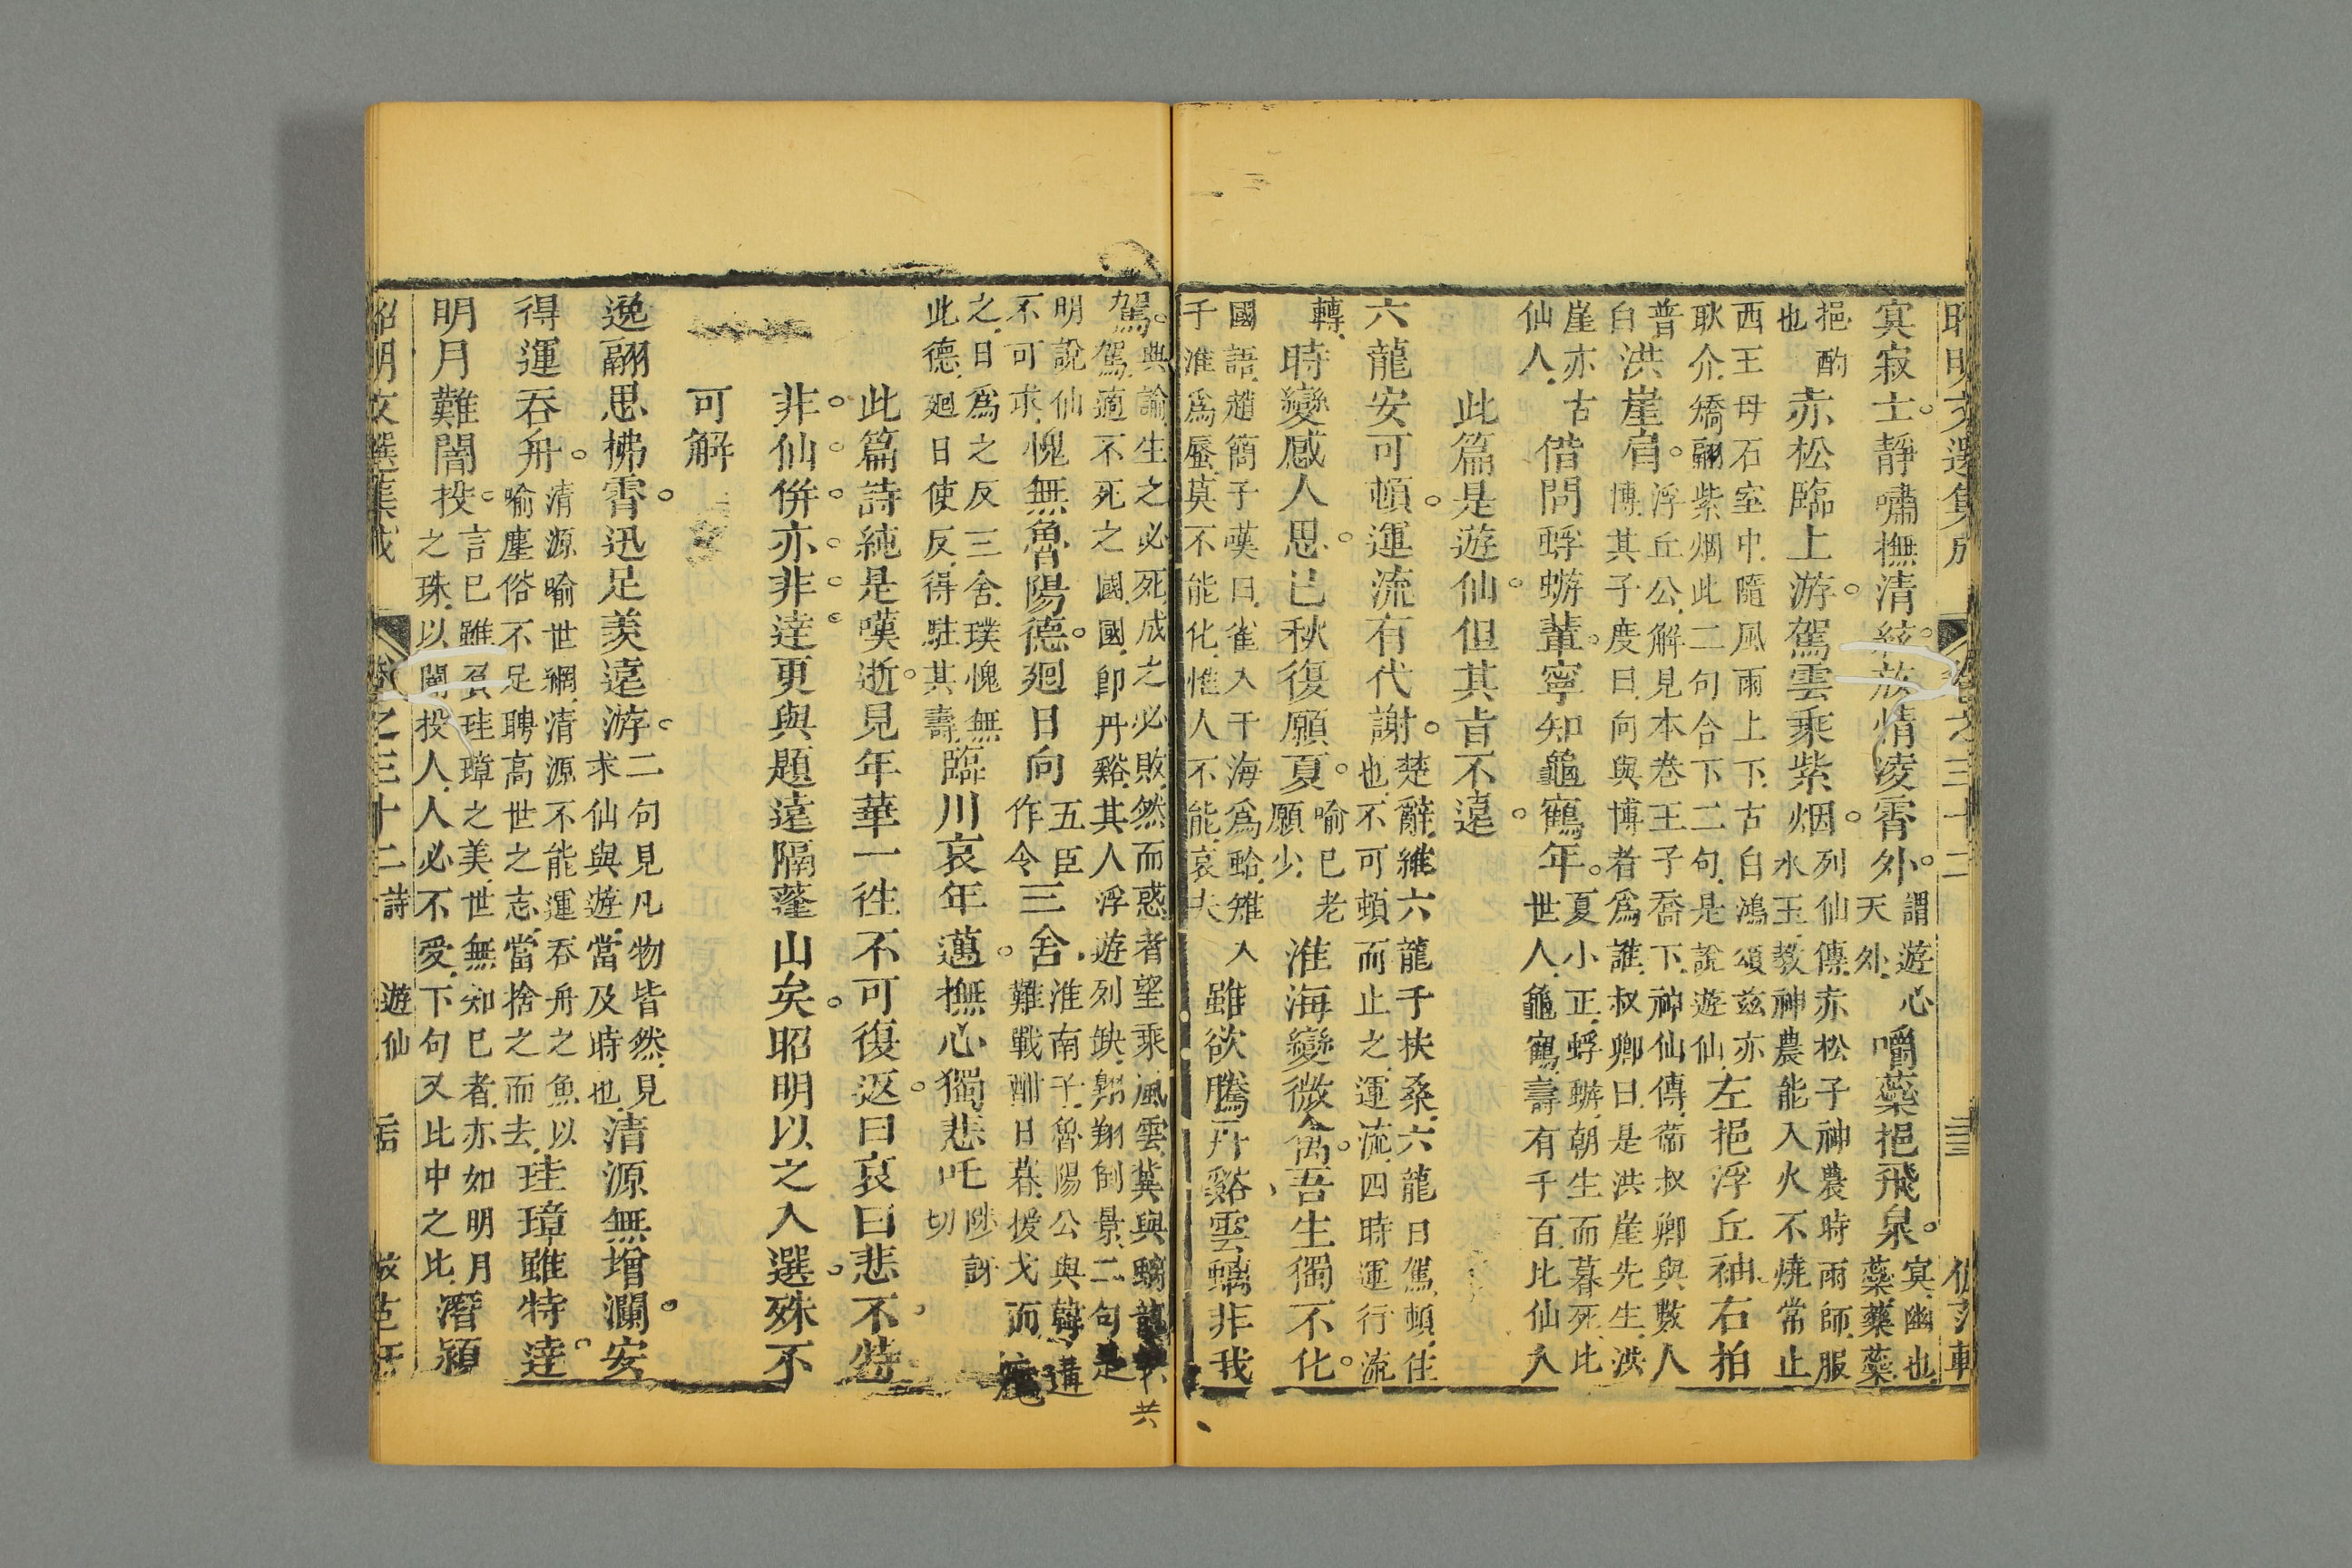 昭明文選集成 卷之三十二
冥寂士靜嘯撫清絃放情凌霄外謂遊心天外嚼蘂挹飛泉冥幽也蘂藥蘂
挹酌也赤松臨上游駕雲乘紫烟列仙傳赤松子神農時雨師服水玉教神農能入火不燒常止
西王母石室中隨風雨上下古白鴻頌茲亦耿介矯翮紫烟此二句合下二句是說遊仙左挹浮丘袖右拍
普白洪崖肩浮丘公解見本卷王子喬下神仙傳衞叔卿與數人博其子度曰向與博者爲誰叔卿曰是洪崖先生洪
崖亦古仙人借問蜉蝣輩寧知龜鶴年夏小正蜉蝣朝生而暮死比世人龜鶴壽有千百比仙人
此篇是遊仙但其㫖不遠
六龍安可頓運流有代謝楚辭維六龍于扶桑六龍日駕頓住也不可頓而止之運流四時運行流
轉時變感人思已秋復願夏喻已老願少淮海變微禽吾生獨不化
國語趙簡子嘆曰雀入于海爲蛤雉入于淮爲蜃莫不能化惟人不能哀夫雖欲騰丹谿雲螭非我
駕典論生之必死成之必敗然而惑者望乘風雲兾與螭龍共駕適不死之國國卽丹谿其人浮遊列缺翱翔倒景二句是
明說仙不可求愧無魯陽德廻日向五臣作令三舍淮南子魯陽公與韓遘難戰酣日暮援戈而麾
之日爲之反三舍璞愧無此德廻日使反得駐其壽臨川哀年邁撫心獨悲吒陟訝切
此篇詩純是嘆逝見年華一往不可復返曰哀曰悲不特
非仙併亦非達更與題遠隔蓬山矣昭明以之入選殊不
可解
逸翮思拂霄迅足羨遠游二句見凡物皆然見求仙與遊當及時也清源無增瀾安
得運吞舟清源喻世網清源不能運吞舟之魚以喻塵俗不足聘高世之志當捨之而去珪璋雖特達
明月難闇投言已雖負珪璋之美世無知已者亦如明月之珠以闇投人人必不受下句又比中之比潛潁
昭明文選集成 卷之三十二 詩 遊仙